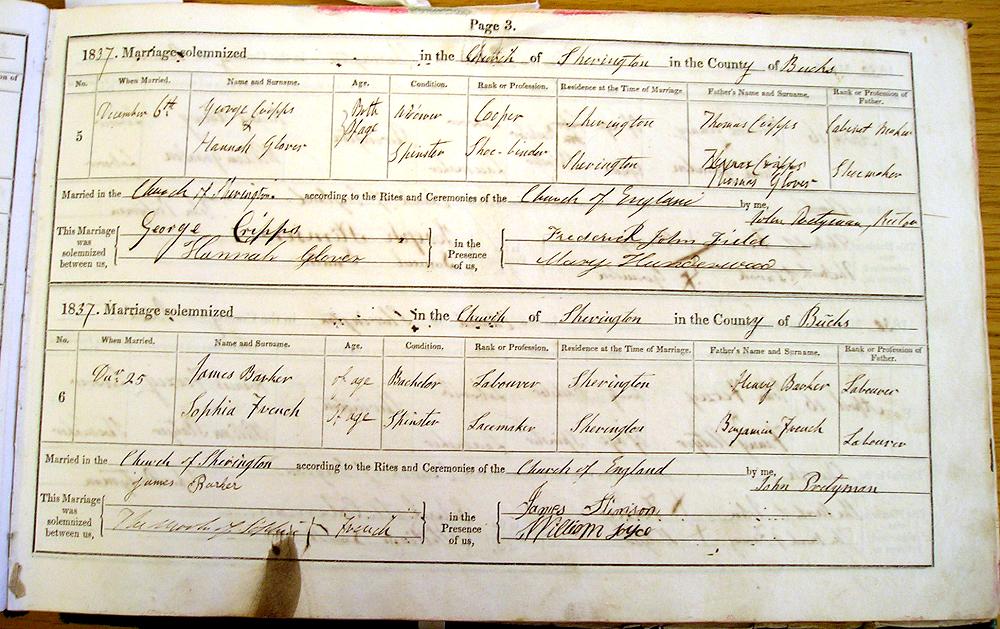 Page 3.
1837. Marriage solemnized in the Church of Sherington in the County of Bucks
No. When Married. Name and Surname. Age. Condition. Rank or Profession. Residence at the Time of Marriage. Father's Name and Surname. Rank or Profession of Father.
5 December 6th George Cripps Both Widower Cooper Sherington Thomas Cripps Cabinet Maker
& of age
Hannah Glover Spinster Shoe-binder Sherington Thomas Cripps Shoemaker
Thomas Glover
Married in the Church of Sherington according to the Rites and Ceremonies of the Church of England by me,
John Pretyman, Rector
This Marriage was solemnized between us, George Cripps in the Presence of us, Frederick John Field
Hannah Glover Mary Hunderwood
1837. Marriage solemnized in the Church of Sherington in the County of Bucks
No. When Married. Name and Surname. Age. Condition. Rank or Profession. Residence at the Time of Marriage. Father's Name and Surname. Rank or Profession of Father.
6 25 James Barker of age Bachelor Labourer Sherington Henry Barker Labourer
Sophia French of age Spinster Lacemaker Sherington Benjamin French Labourer
Married in the Church of Sherington according to the Rites and Ceremonies of the Church of England by me, John Pretyman
This Marriage was solemnized between us, James Barker in the Presence of us, James Stimson
The mark of Sophia French William Joyce